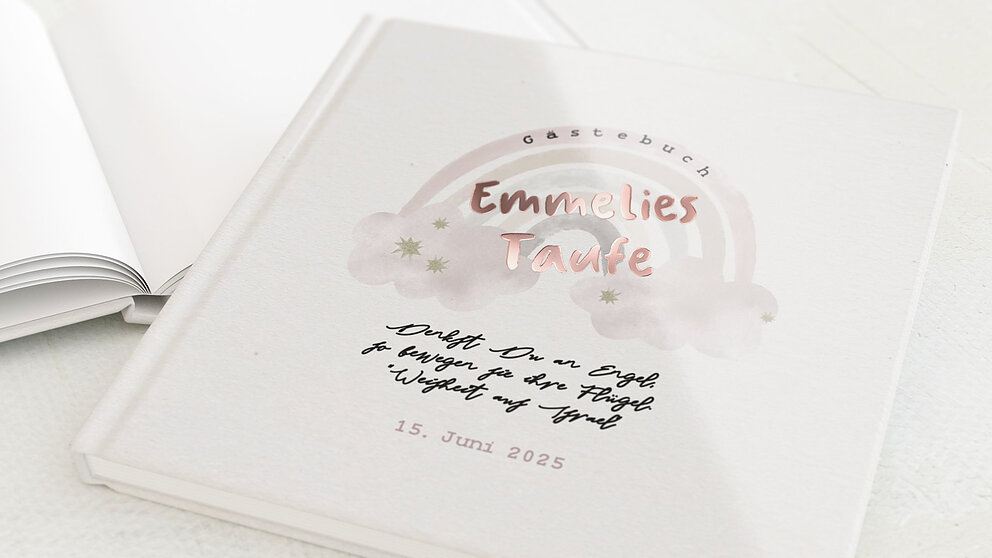 Gästebuch
Emmelies
Taufe
Denkst Du an Engel,
so bewegen sie ihre Flügel.
"Weisheit aus Israel"
15. Juni 2025